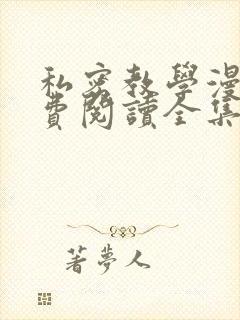 私密教學漫
費閱讀全集
著夢人